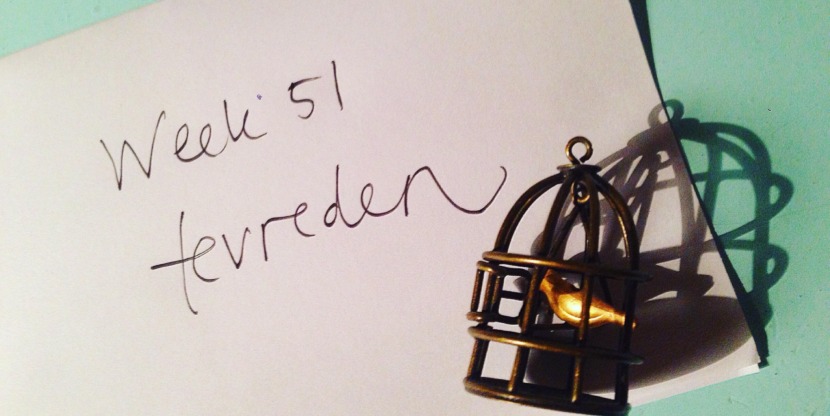 Week 51
tevreden